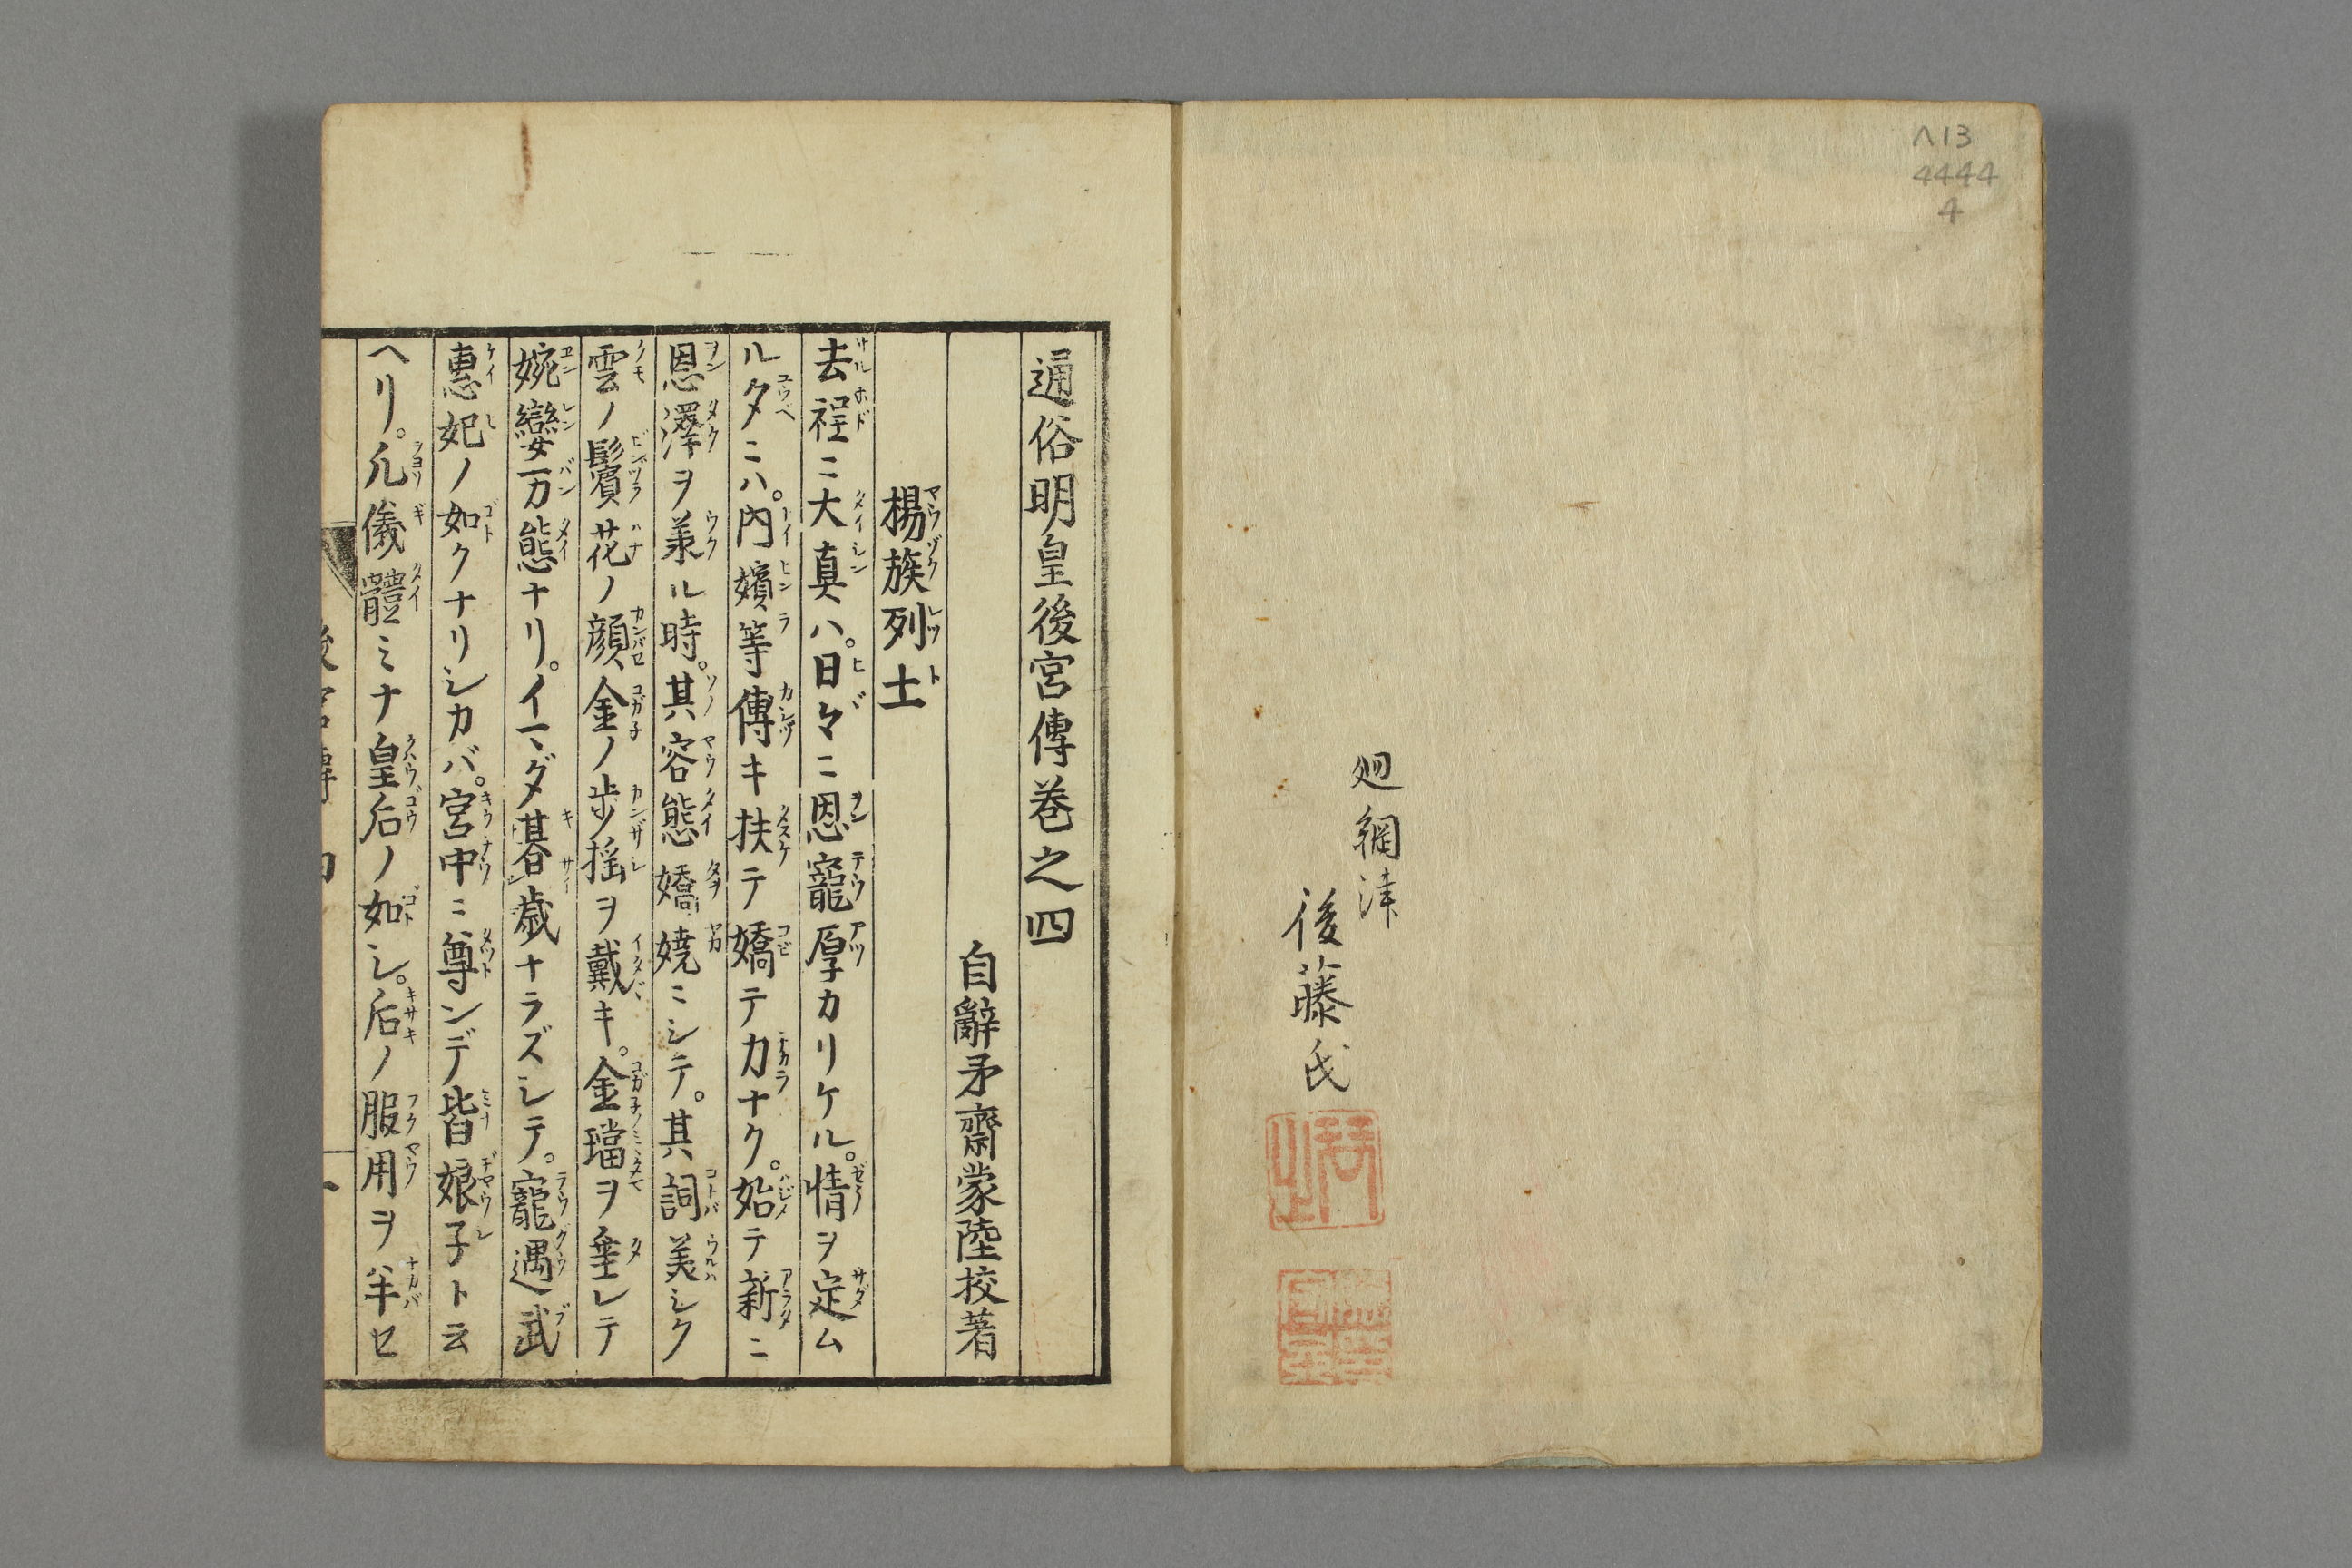 ヘ13
4444
4
廻綱津
後藤氏
通俗明皇後宮傳巻之四
自辭矛齋蒙陸校著
楊族列土
去程ニ大真ハ。日々ニ恩寵厚カリケル。情ヲ定ム
ル夕ニハ。內嬪等傳キ扶テ嬌テ力ナク。始テ新ニ
恩澤ヲ羕ル時。其容態嬌嬈ニシテ。其詞美シク
雲ノ鬢花ノ顔金ノ歩揺ヲ戴キ。金璫ヲ垂レテ
婉孌万態ナリ。イマダ朞歳ナラズシテ。寵遇武
惠妃ノ如クナリシカバ。宮中ニ尊ンデ皆娘子ト云
ヘリ。凢儀體ミナ皇后ノ如シ。后ノ服用ヲ半セ